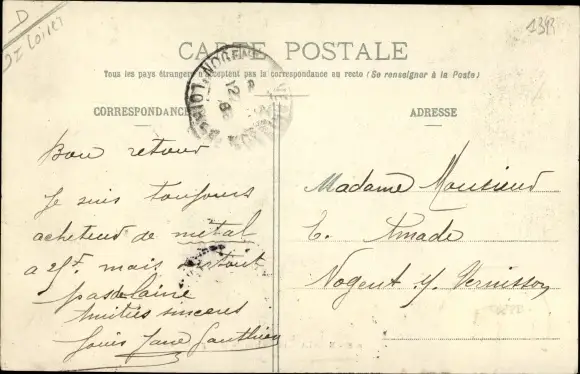 D
Loiret
1393
CARTE POSTALE
Tous les pays étrangers n'acceptent pas la correspondance au recto (Se renseigner à la Poste)
CORRESPONDANCE
ADRESSE
Bon retour
Je suis toujours
acheteur de métal
a 25f. mais surtout
pas de laine
Amitiés sinceres
Gauthier
Madame Monsieur
Amade
Nogent s/ Vernisson